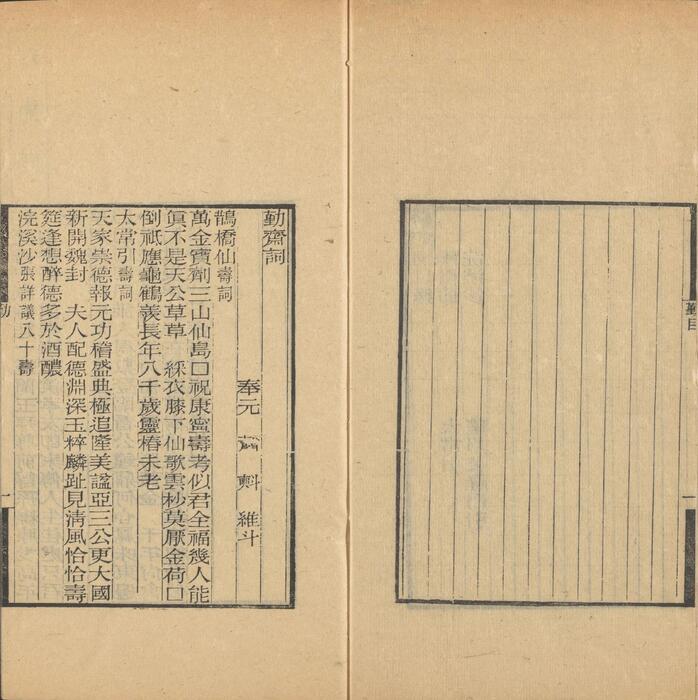 勤目
勤齋詞
奉元 蕭㪺 維斗
鵲橋仙壽詞
萬金寶劑三山仙島口祝康寧壽考似君全福幾人能
眞不是天公草草　綵衣膝下仙歌雲杪莫厭金荷口
倒祇應龜鶴羨長年八千歲靈椿未老
太常引壽詞
天家崇德報元功稽盛典極追隆美謚亞三公更大國
新開魏封　夫人配德淵深玉粹麟趾見清風恰恰壽
筵逢想醉德多於酒醲
浣溪沙張詳議八十壽
一